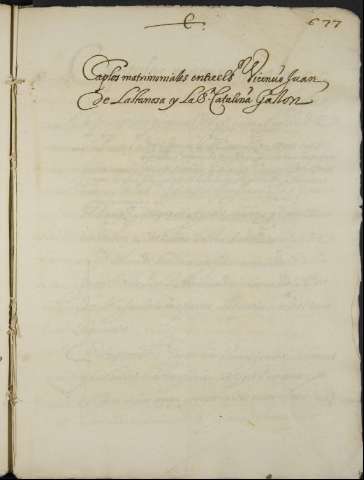 677
Caplos matrimoniales entre el Sr. Vicencio Juan
De Lastanosa y La Sa. Catalina Gaston